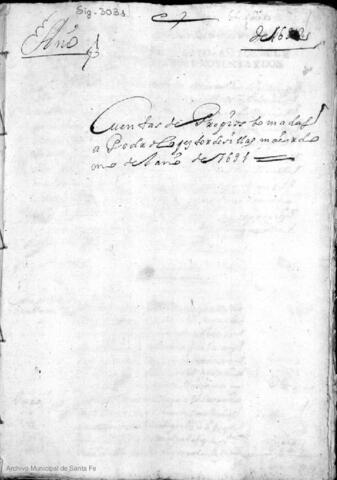 Sig. 3031
Año
de 16
Cuentas de Propios tomadas
a Pedro Tordesillas mayordo
mo del año de 1631
Archivo Municipal de Santa Fe